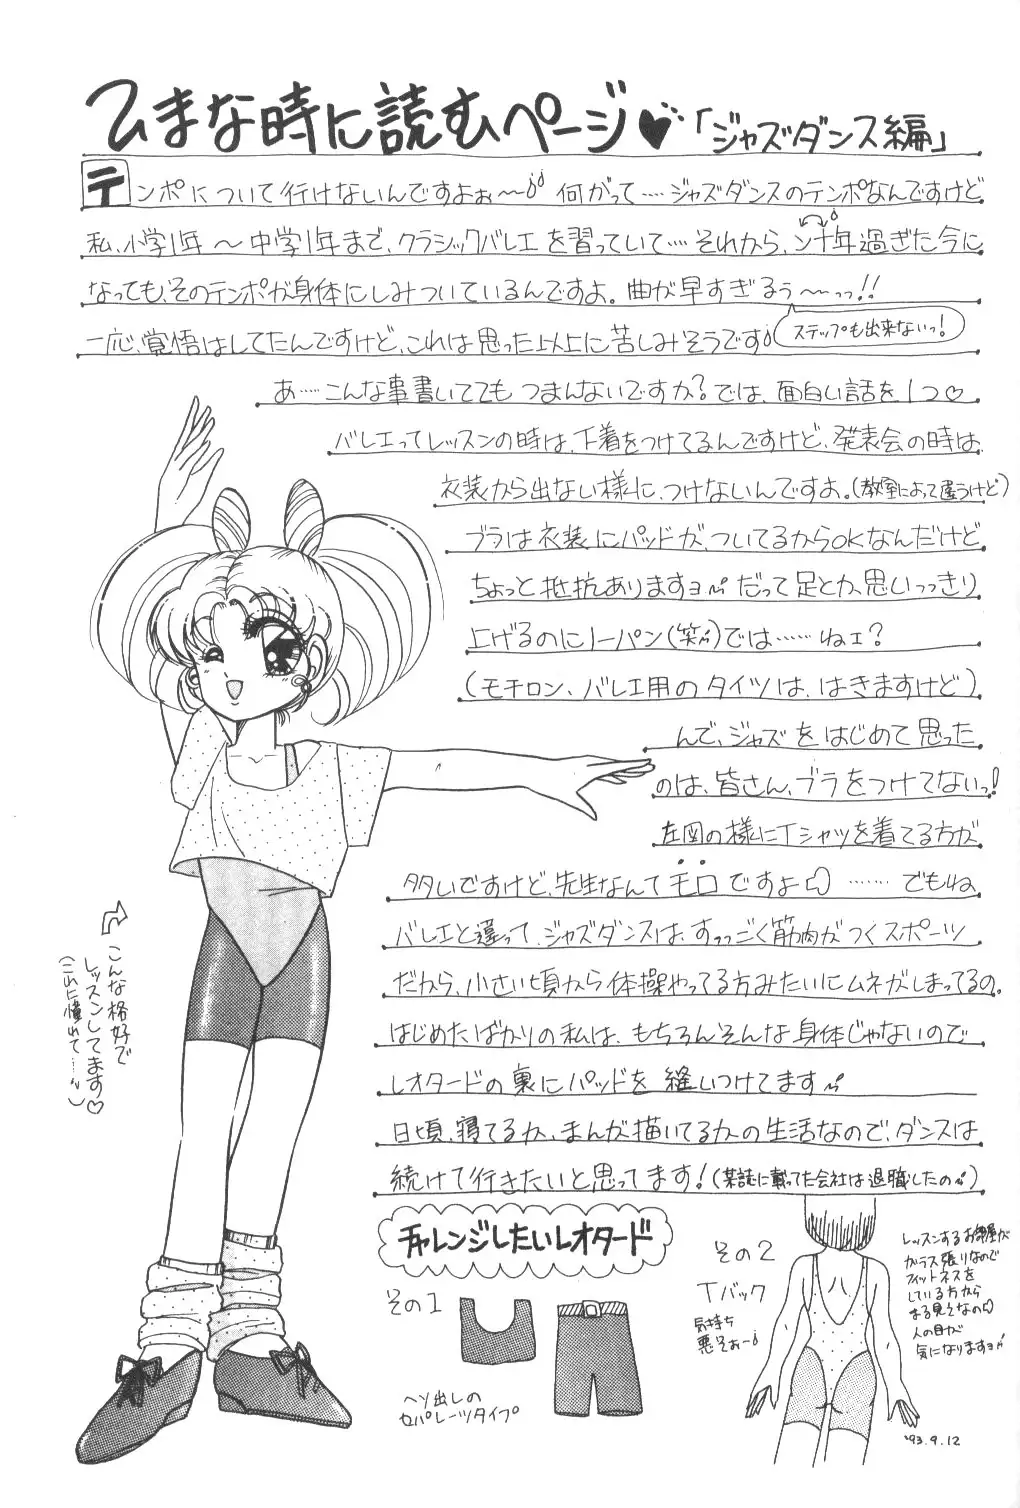 ひまな時に読むページ♥「ジャズダンス編」
テンポについて行けないんですよぉ〜 何がって……ジャズダンスのテンポなんですけど
私、小学1年〜中学1年まで、クラシックバレエを習っていて……それから、ン十年過ぎた今に
なっても、そのテンポが身体にしみついているんですよ。曲が早すぎるぅ〜っっ!!
ステップも出来ないっ!
一応、覚悟はしてたんですけど、これは思った以上に苦しみそうです
あ……こんな事書いててもつまんないですか?では、面白い話を1つ♡
バレエってレッスンの時は、下着をつけてるんですけど、発表会の時は
衣装から出ない様に、つけないんですよ。(教室によって違うけど)
ブラは衣装にパッドが、ついてるからOKなんだけど
ちょっと抵抗ありますョ だって足とか、思いっっきり
上げるのにノーパン(笑)では……ねェ?
(モチロン、バレエ用のタイツは、はきますけど)
んで、ジャズをはじめて思った
のは、皆さん、ブラをつけてないっ!
左図の様にTシャツを着てる方が
多いですけど、先生なんてモロですよ ……でもね
バレエと違って、ジャズダンスは、すっっごく筋肉がつくスポーツ
だから、小さい頃から体操やってる方みたいにムネがしまってるの。
はじめたばかりの私は、もちろんそんな身体じゃないので
レオタードの裏にパッドを縫いつけてます
日頃、寝てるか、まんが描いてるかの生活なので、ダンスは
続けて行きたいと思ってます!(某誌に載ってた会社は退職したの)
こんな格好で
レッスンしてます♡
(これに憧れて…)
チャレンジしたいレオタード
その1
ヘソ出しの
セパレーツタイプ
その2
Tバック
気持ち
悪そぉー
レッスンするお部屋が
ガラス張りなので
フィットネスを
している方から
まる見えなの
人の目が
気になりますョ
'93.9.12